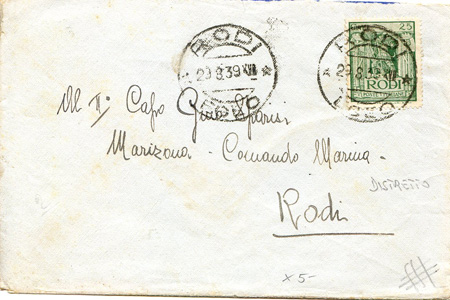 RODI
29.8.39 XVII
EGEO
RODI
29.8.39 XVII
EGEO
25
RODI
Al Iº Capo Parisi
Marizona - Comando Marina -
DISTRETTO
Rodi
x 5-